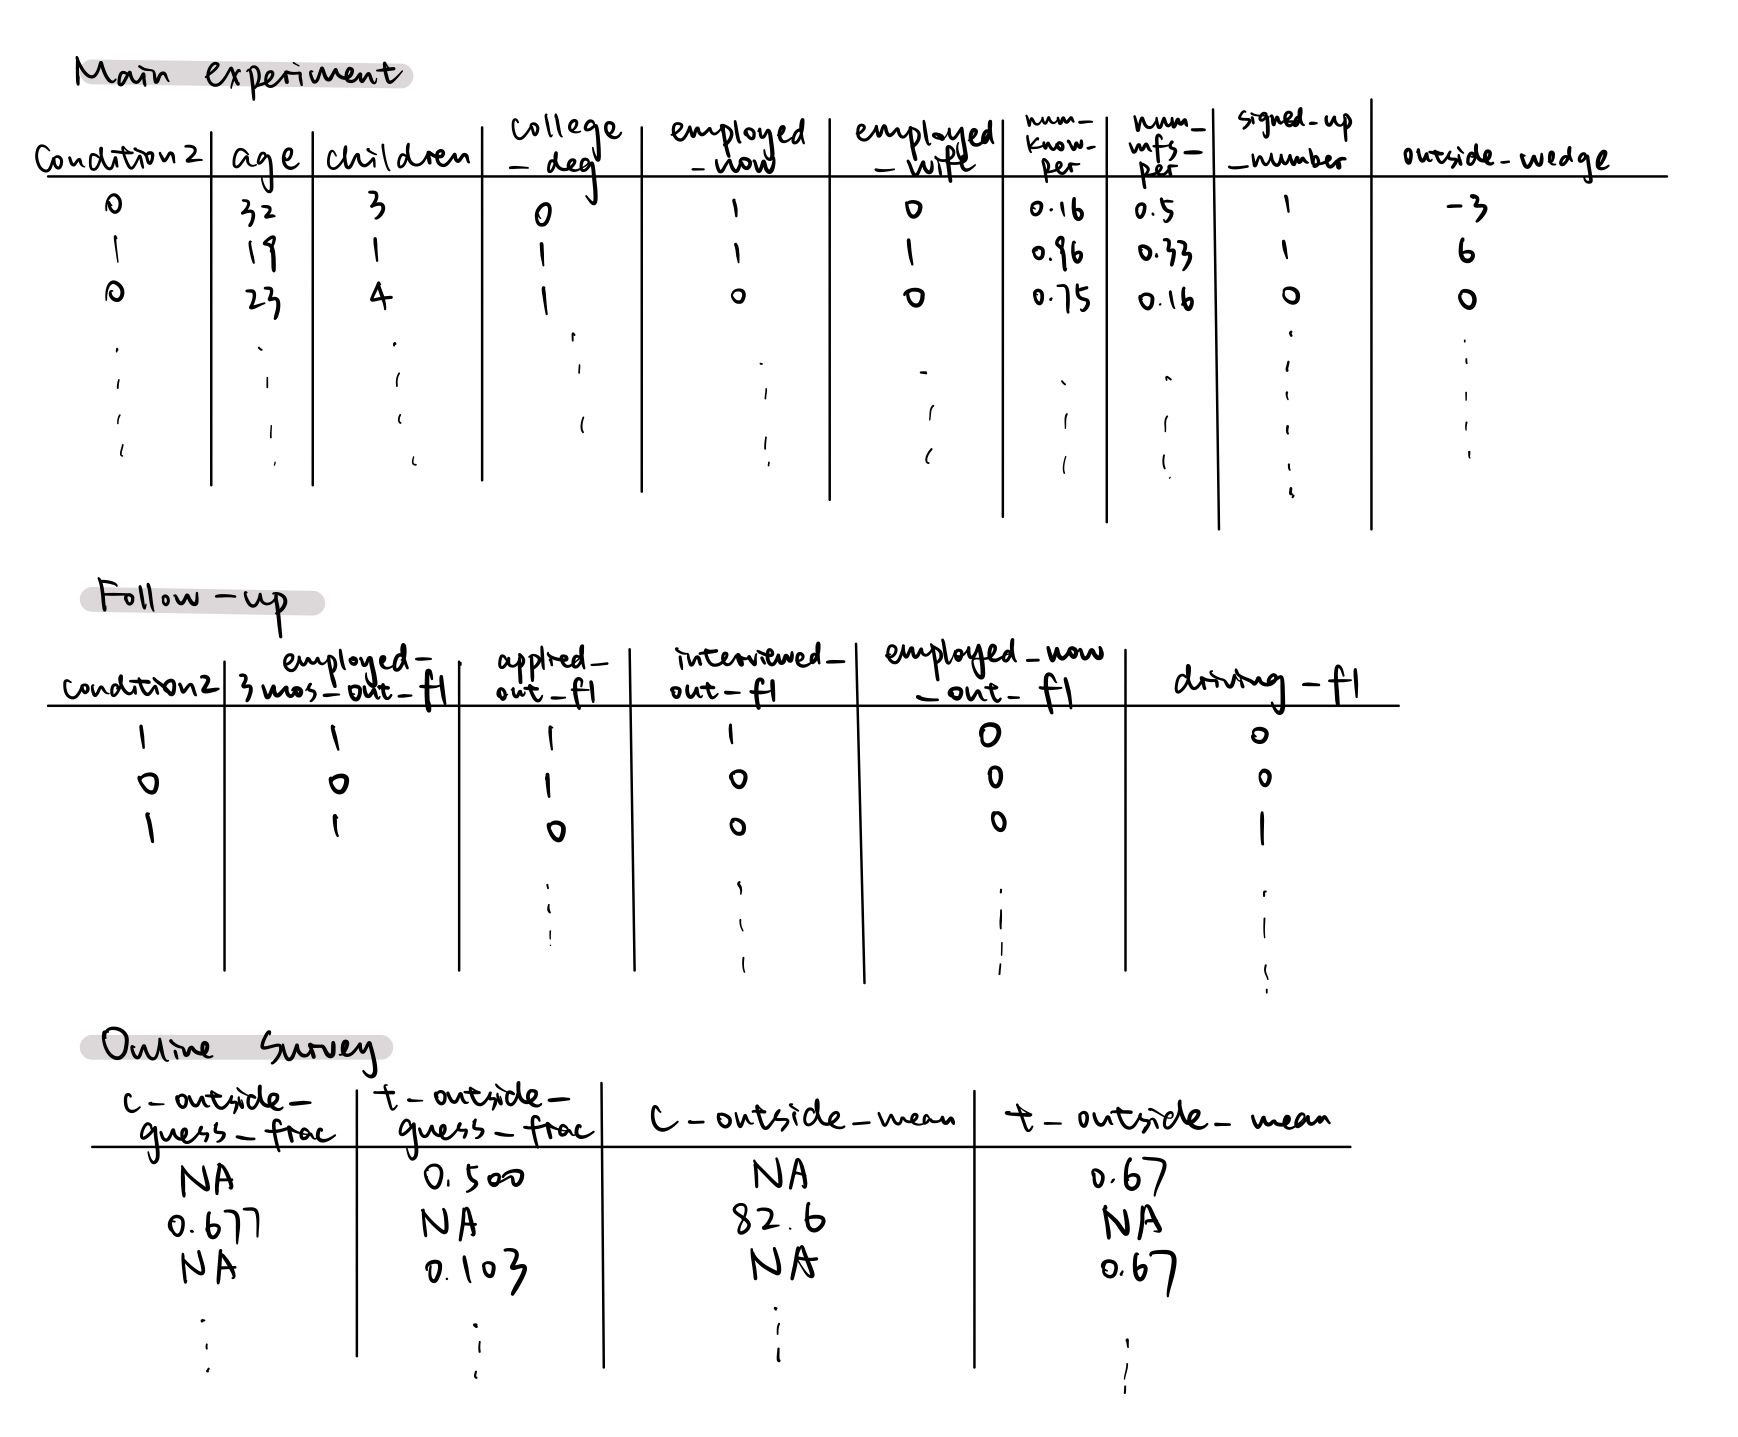 Main experiment
condition2 age children college_deg employed_now employed_wife num_know_per num_mfs_per signed_up_number outside_wedge
0 32 3 0 1 0 0.16 0.5 1 -3
1 19 1 1 1 1 0.96 0.33 1 6
0 23 4 1 0 0 0.75 0.16 0 0
Follow-up
condition2 employed_3mos_out_fl applied_out_fl interviewed_out_fl employed_now_out_fl driving_fl
1 1 1 1 0 0
0 0 1 0 0 0
1 1 0 0 0 1
Online Survey
c_outside_guess_frac t_outside_guess_frac c_outside_mean t_outside_mean
NA 0.500 NA 0.67
0.677 NA 82.6 NA
NA 0.103 NA 0.67